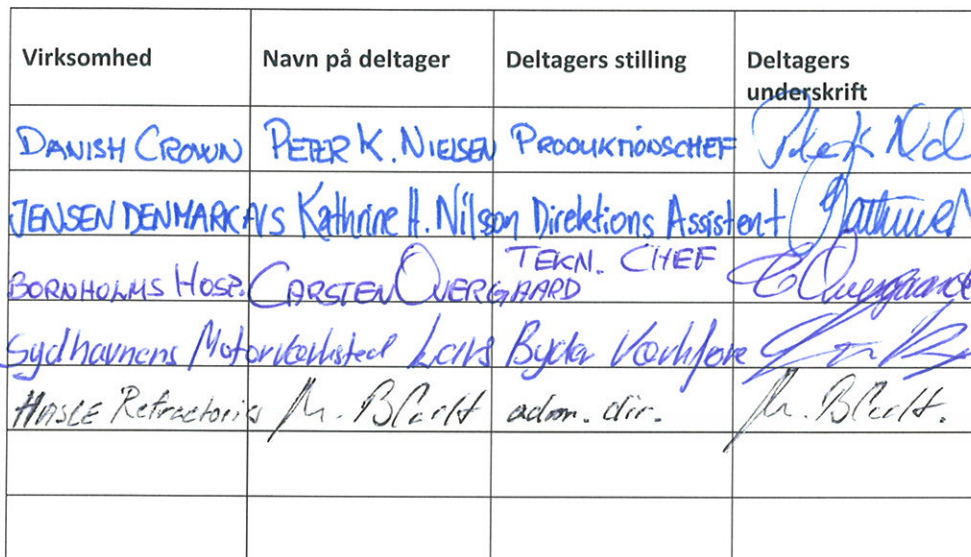 Virksomhed Navn på deltager Deltagers stilling Deltagers underskrift
DANISH CROWN PETER K. NIELSEN PRODUKTIONSCHEF
JENSEN DENMARK A/S Kathrine H. Nilson Direktions Assistent
BORNHOLMS HOSP. CARSTEN OVERGAARD TEKN. CHEF C Overgaard
Sydhavnens Motorværksted Lars
HASLE Refractories M. adm. dir. M.